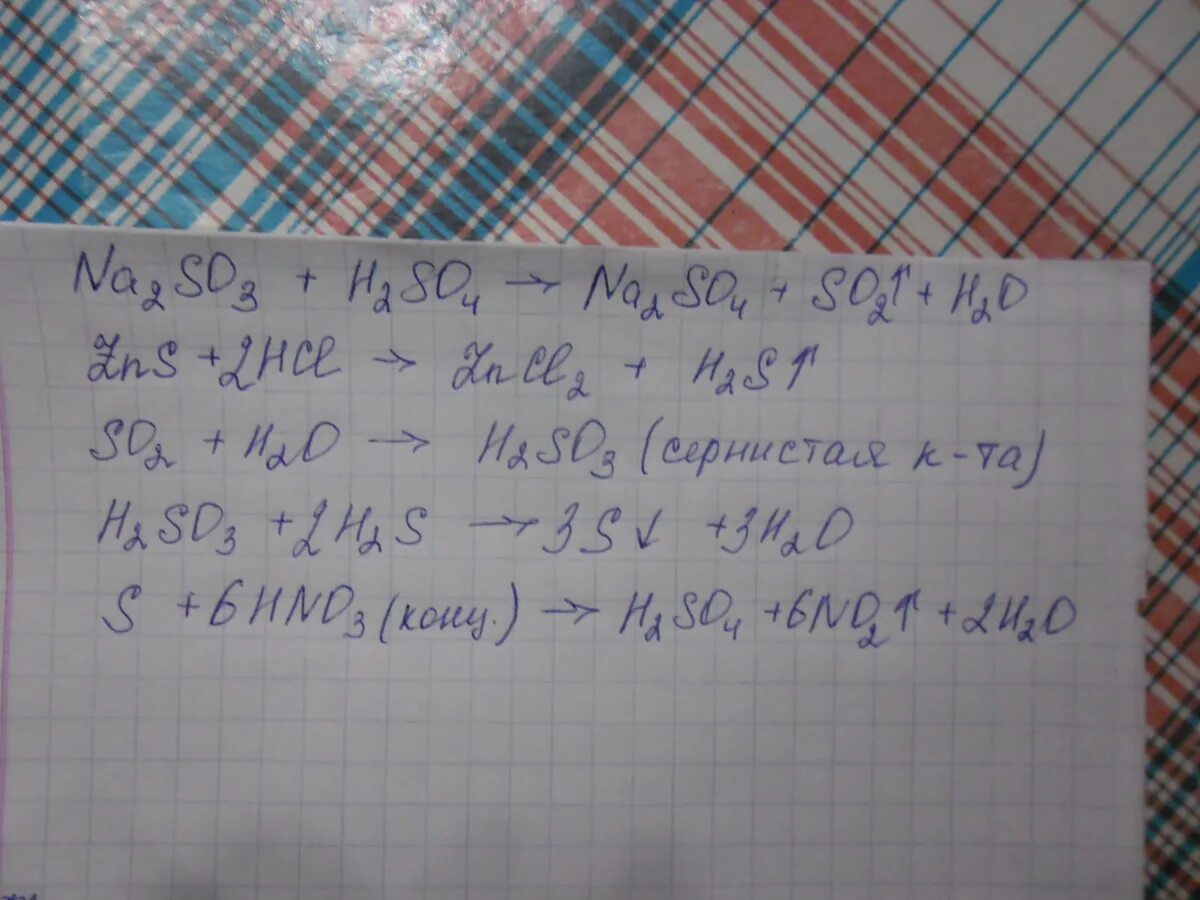 Na₂SO₃ + H₂SO₄ → Na₂SO₄ + SO₂↑ + H₂O
ZnS + 2HCl → ZnCl₂ + H₂S↑
SO₂ + H₂O → H₂SO₃ (сернистая к-та)
H₂SO₃ + 2H₂S → 3S↓ + 3H₂O
S + 6HNO₃ (конц.) → H₂SO₄ + 6NO₂↑ + 2H₂O